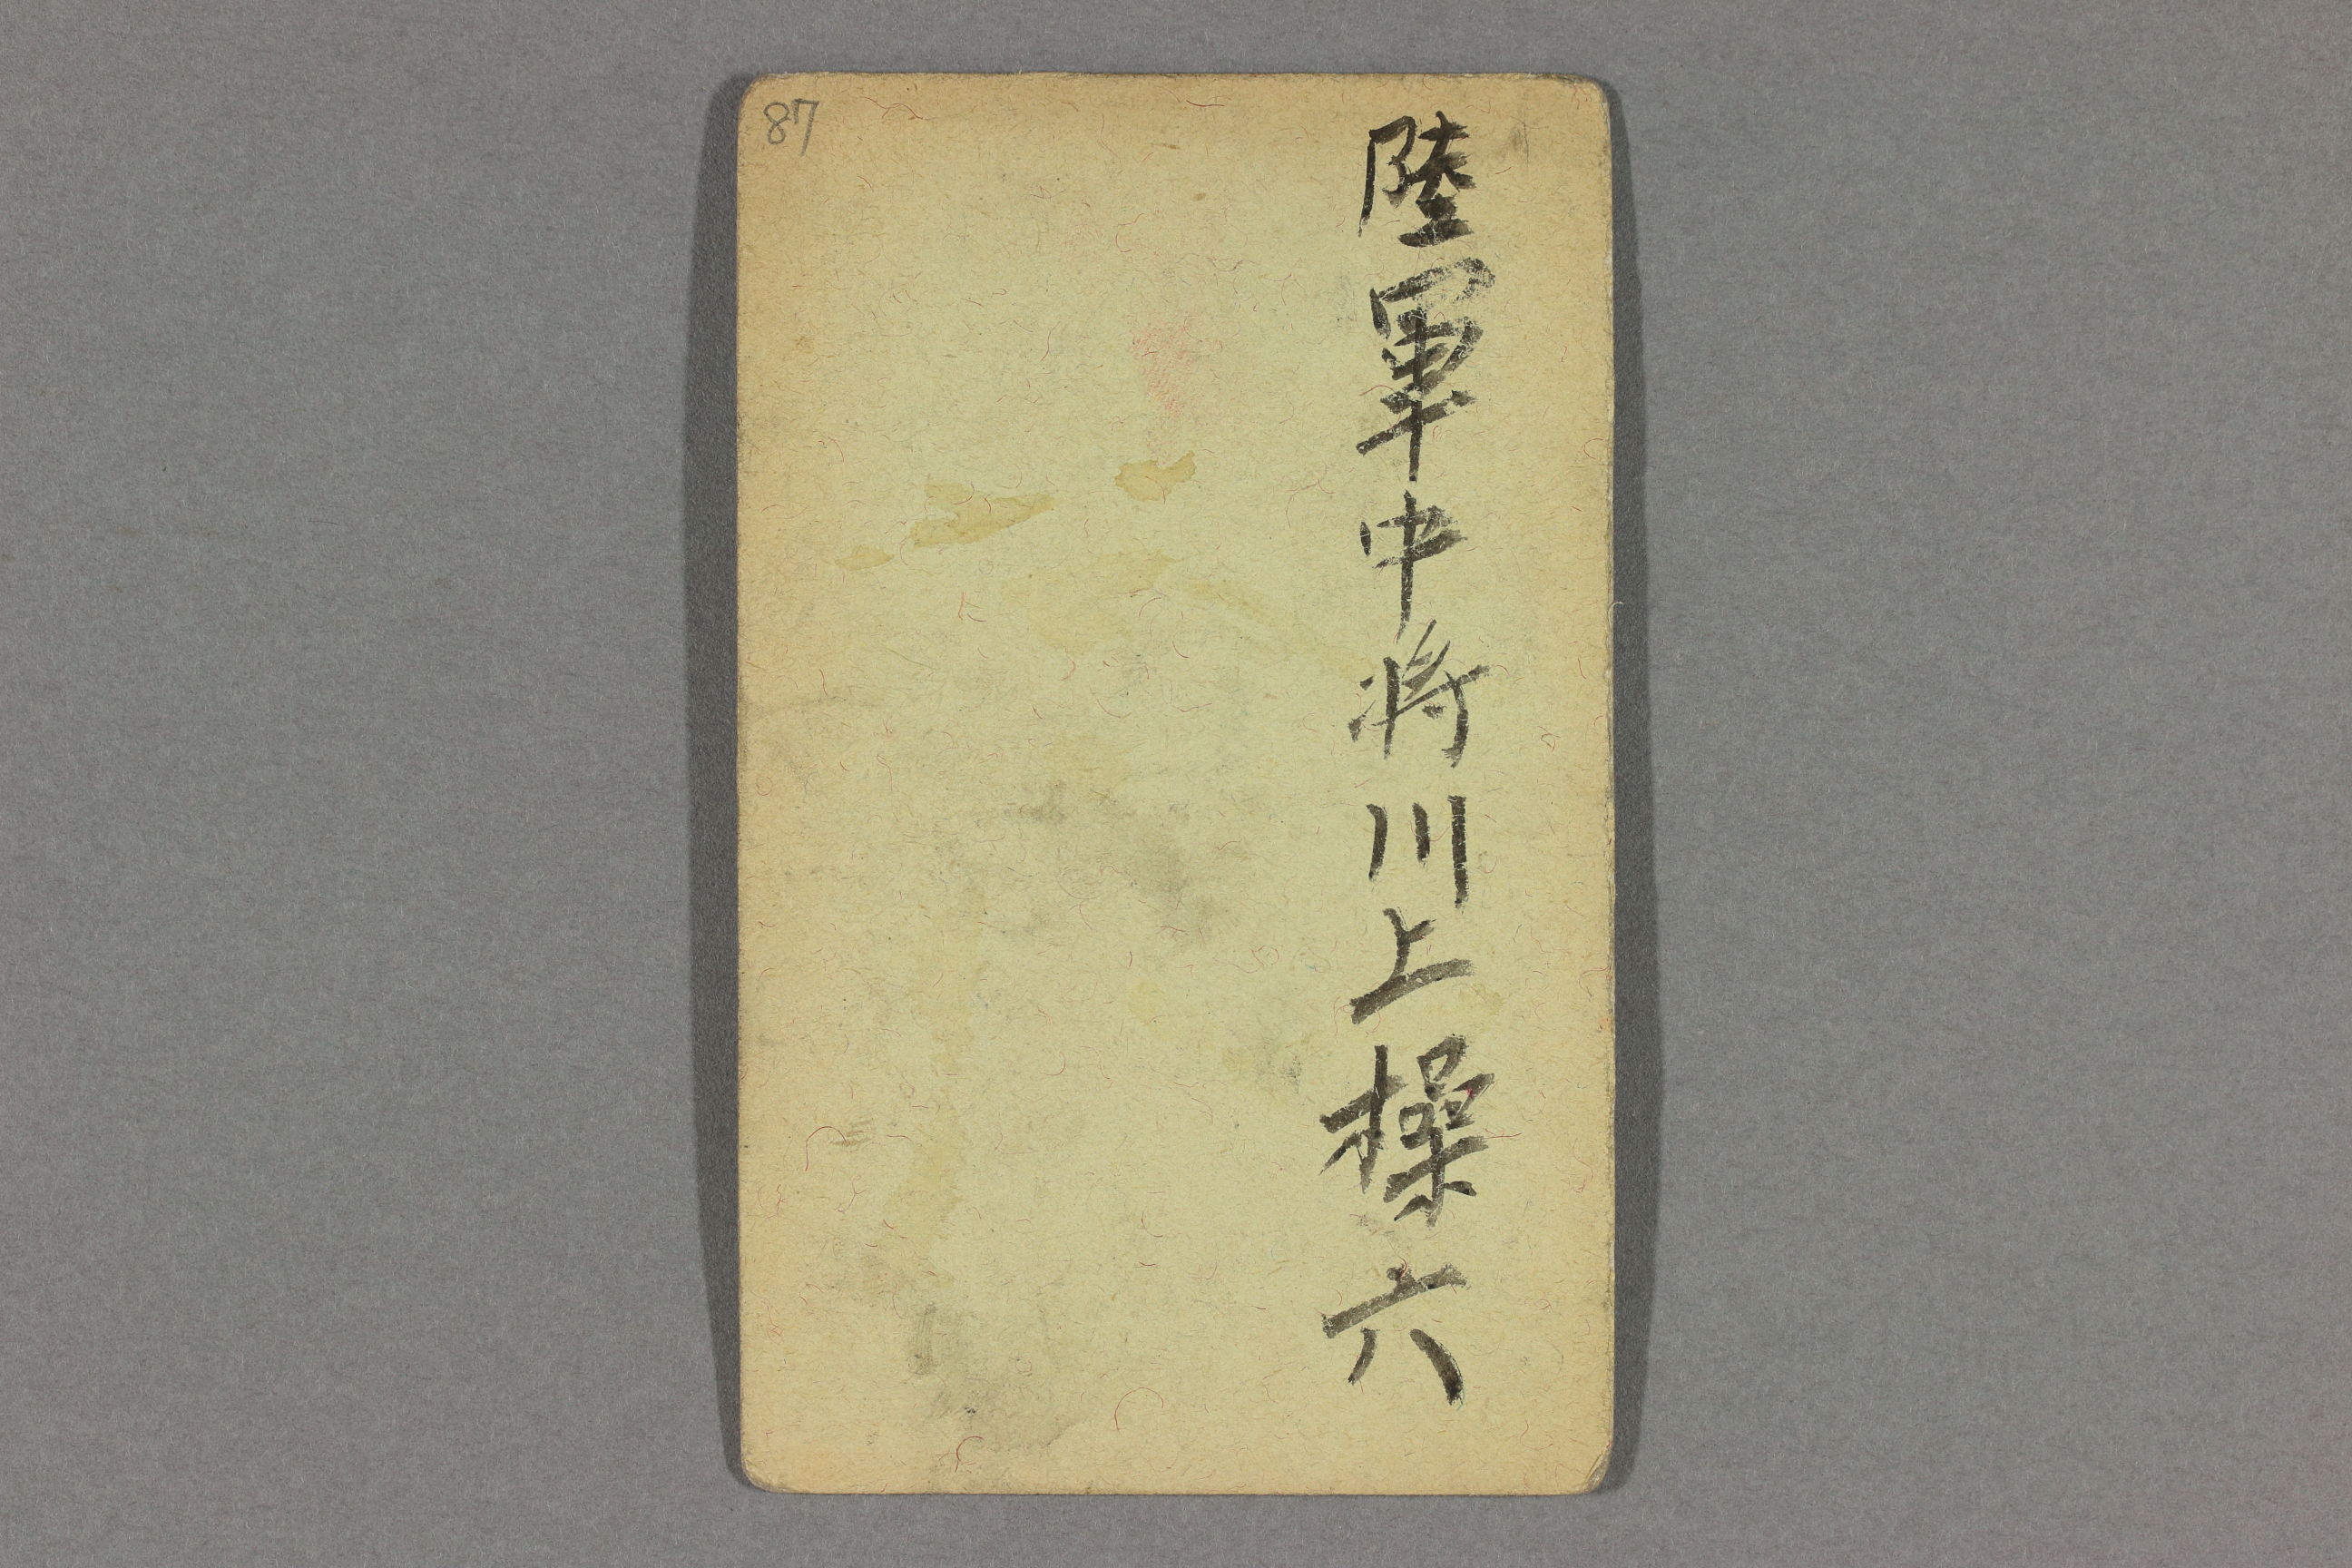 87
陸軍中将川上操六